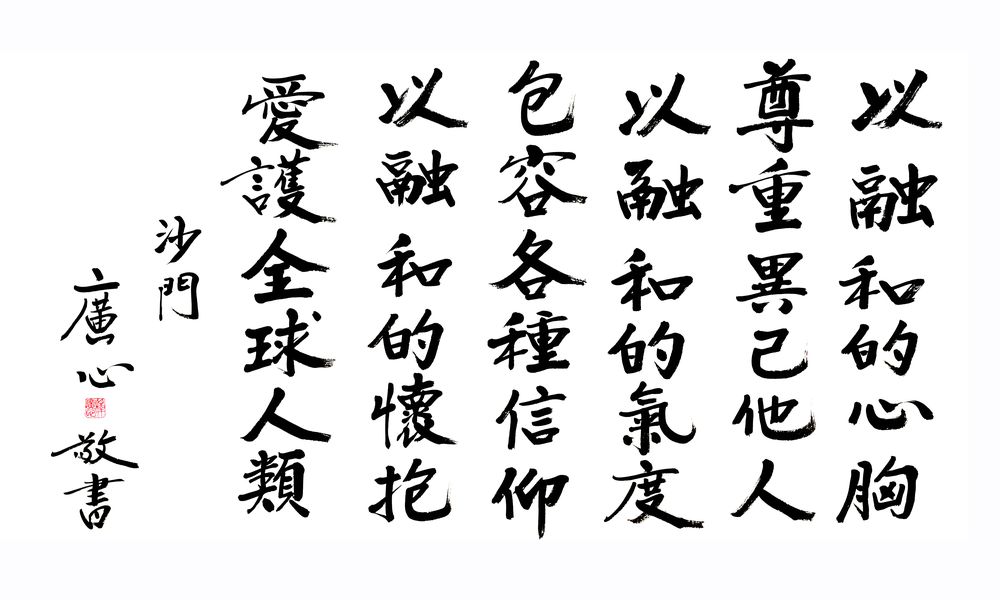 以融和的心胸
尊重異己他人
以融和的氣度
包容各種信仰
以融和的懷抱
愛護全球人類
沙門
廣心
敬書